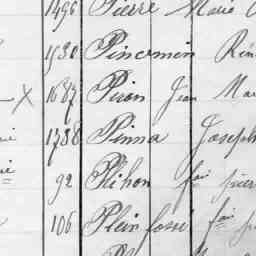 1496 Pierre Marie
1530 Pincemin René
X 1687 Piron Jean Mar
1738 Pinna Joseph
92 Plihon fai pier
106 Plein fossé fai